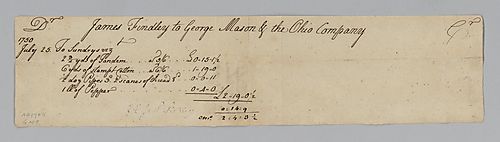 Dr James Findley to George Mason & the Ohio Company Cr
1750
July 23. To Sundrys viz t
2½ yds of Tandem 0..15..1½
6 yds of Stampt Cotton 1..19..0
½ doz Pipes 3d 0..0..11
1 lb of Pepper 0..4..0
£2..19..0½
0..14..9
2..4..3½